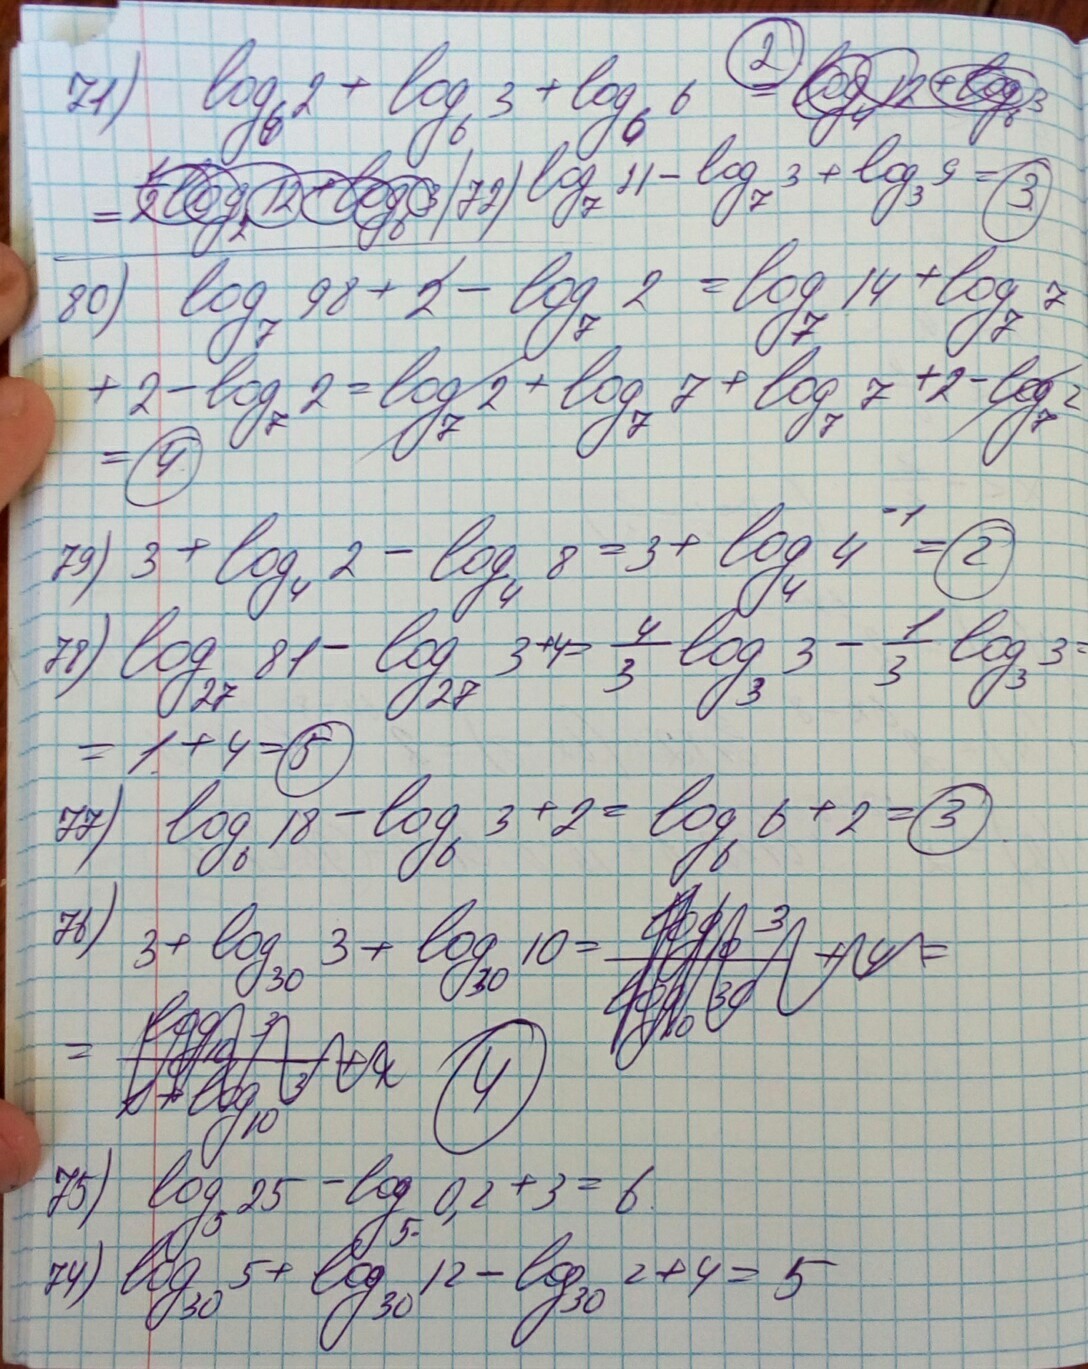 71) log₆2 + log₆3 + log₆6 = ②
= 72) log₇21 - log₇3 + log₃9 = ③
80) log₇98 + 2 - log₇2 = log₇14 + log₇7
+ 2 - log₇2 = log₇2 + log₇7 + log₇7 + 2 - log₇2
= ④
79) 3 + log₄2 - log₄8 = 3 + log₄4⁻¹ = ②
78) log₂₇81 - log₂₇3 + 4 = 4/3 log₃3 - 1/3 log₃3 =
= 1 + 4 = ⑤
77) log₆18 - log₆3 + 2 = log₆6 + 2 = ③
76) 3 + log₃₀3 + log₃₀10 =
= ④
75) log₅25 - log₅0,2 + 3 = 6
74) log₃₀5 + log₃₀12 - log₃₀2 + 4 = 5